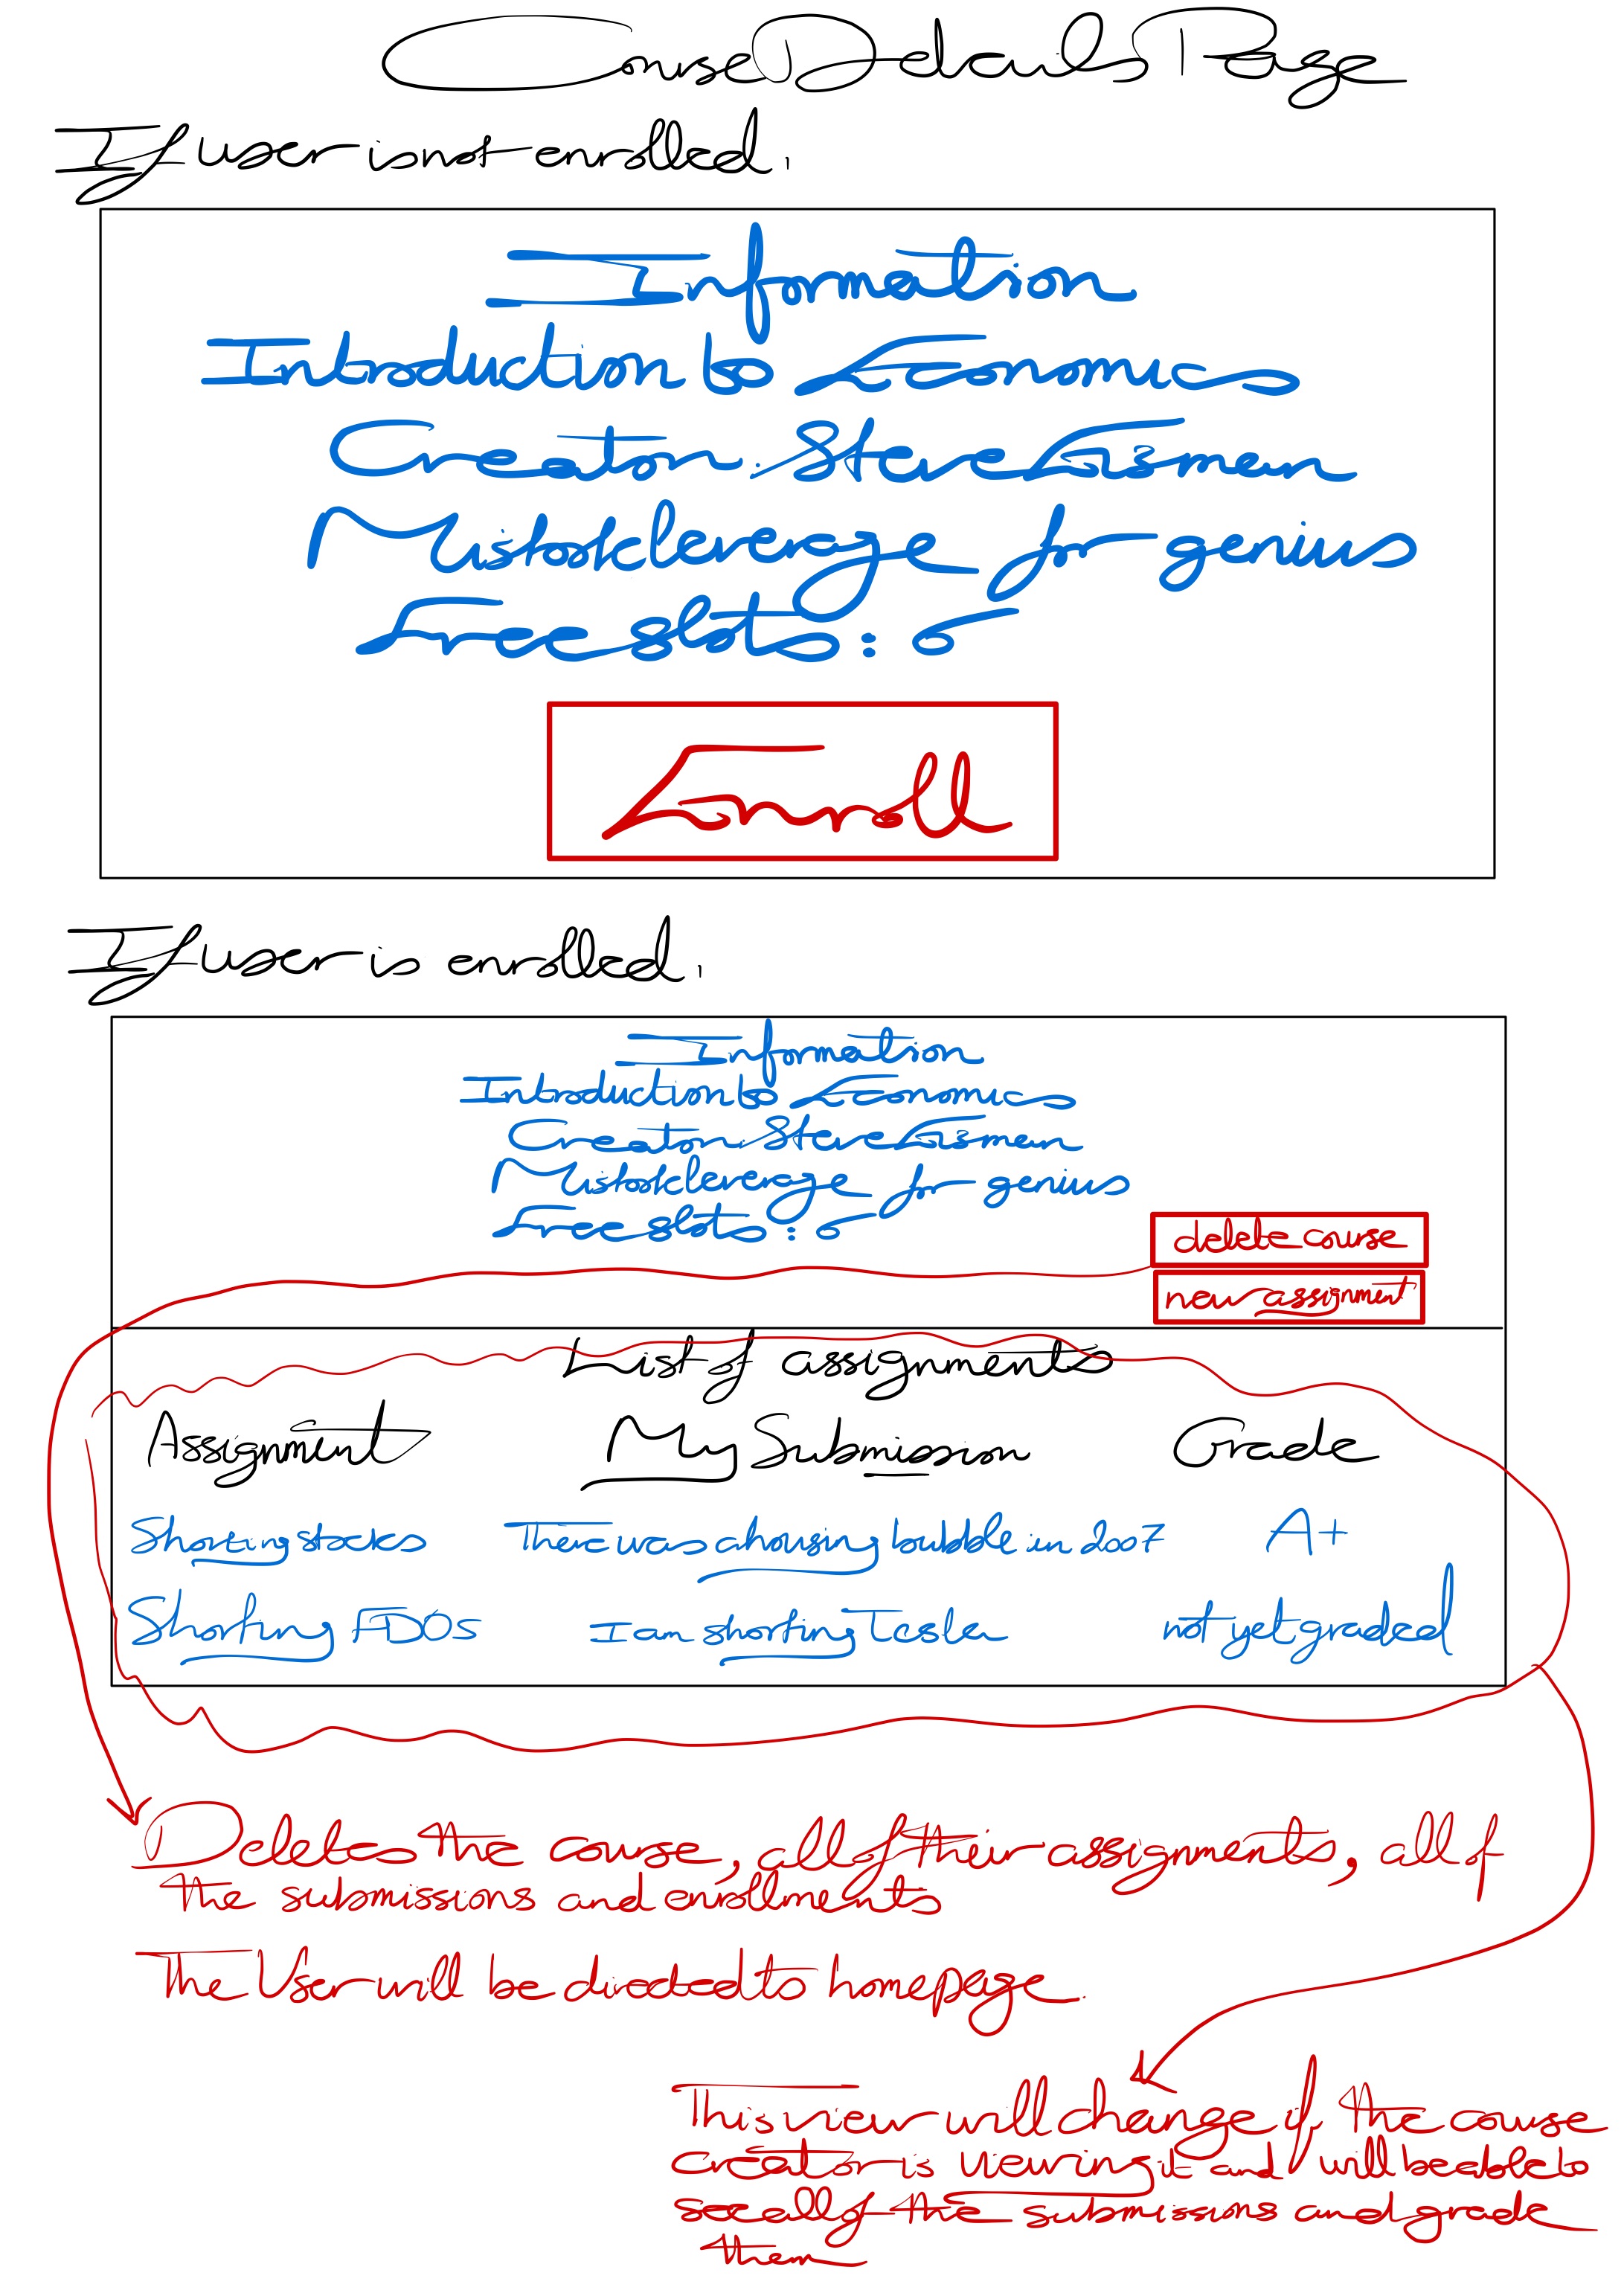 Course Details Page
If user is not enrolled.
Information
Introduction to Economics
Creator: Steve Eisman
Mistook leverage for genius
Free slots: 0
Enroll
If user is enrolled.
Information
Introduction to Economics
Creator: Steve Eisman
Mistook leverage for genius
Free slots: 0
delete course
new assignment
List of assignments
Assignment My Submission Grade
Shorting stocks There was a housing bubble in 2007 A+
Shorting I am shorting Tesla not yet graded
Deletes the course, all of their assignments, all of
the submissions and enrollments
The User will be directed to homepage.
This view will change if the course
creator is viewing it and will be able to
see all of the submissions and grade
them